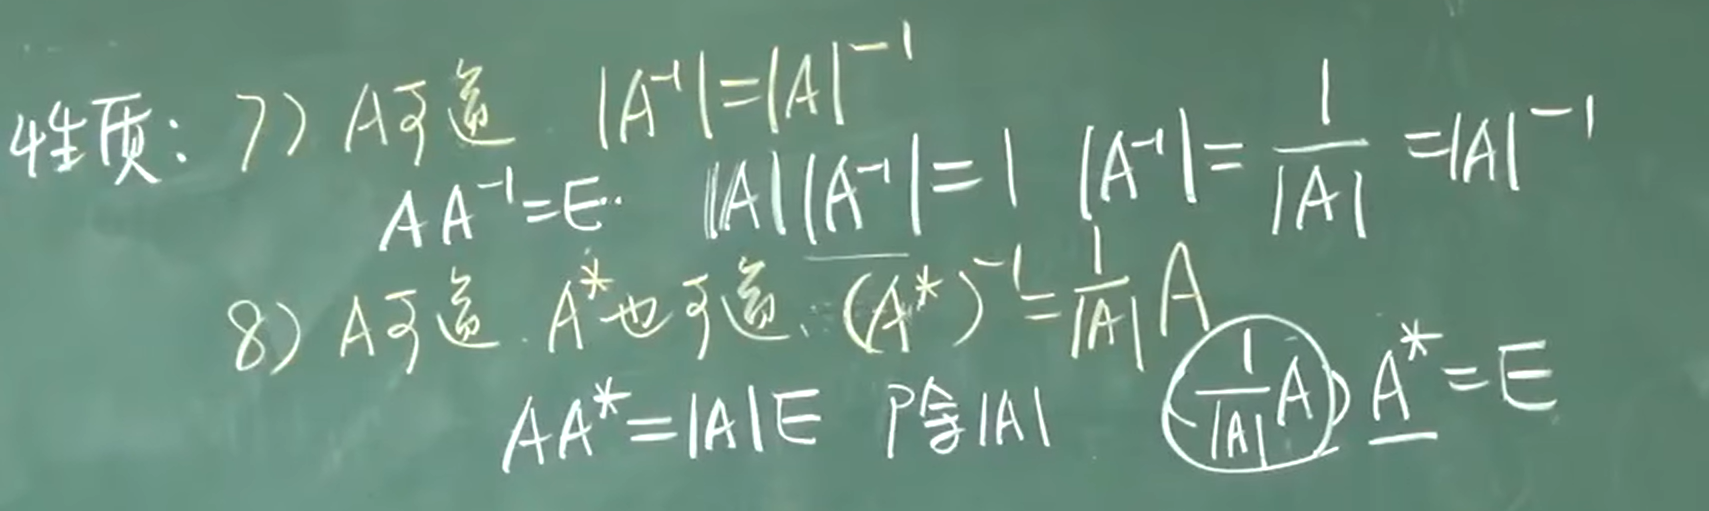 性质: 7) A可逆 |A⁻¹|=|A|⁻¹
AA⁻¹=E. |A||A⁻¹|=1 |A⁻¹|=1/|A|=|A|⁻¹
8) A可逆. A*也可逆. (A*)⁻¹=1/|A| A
AA*=|A|E 除|A| (1/|A| A) A*=E